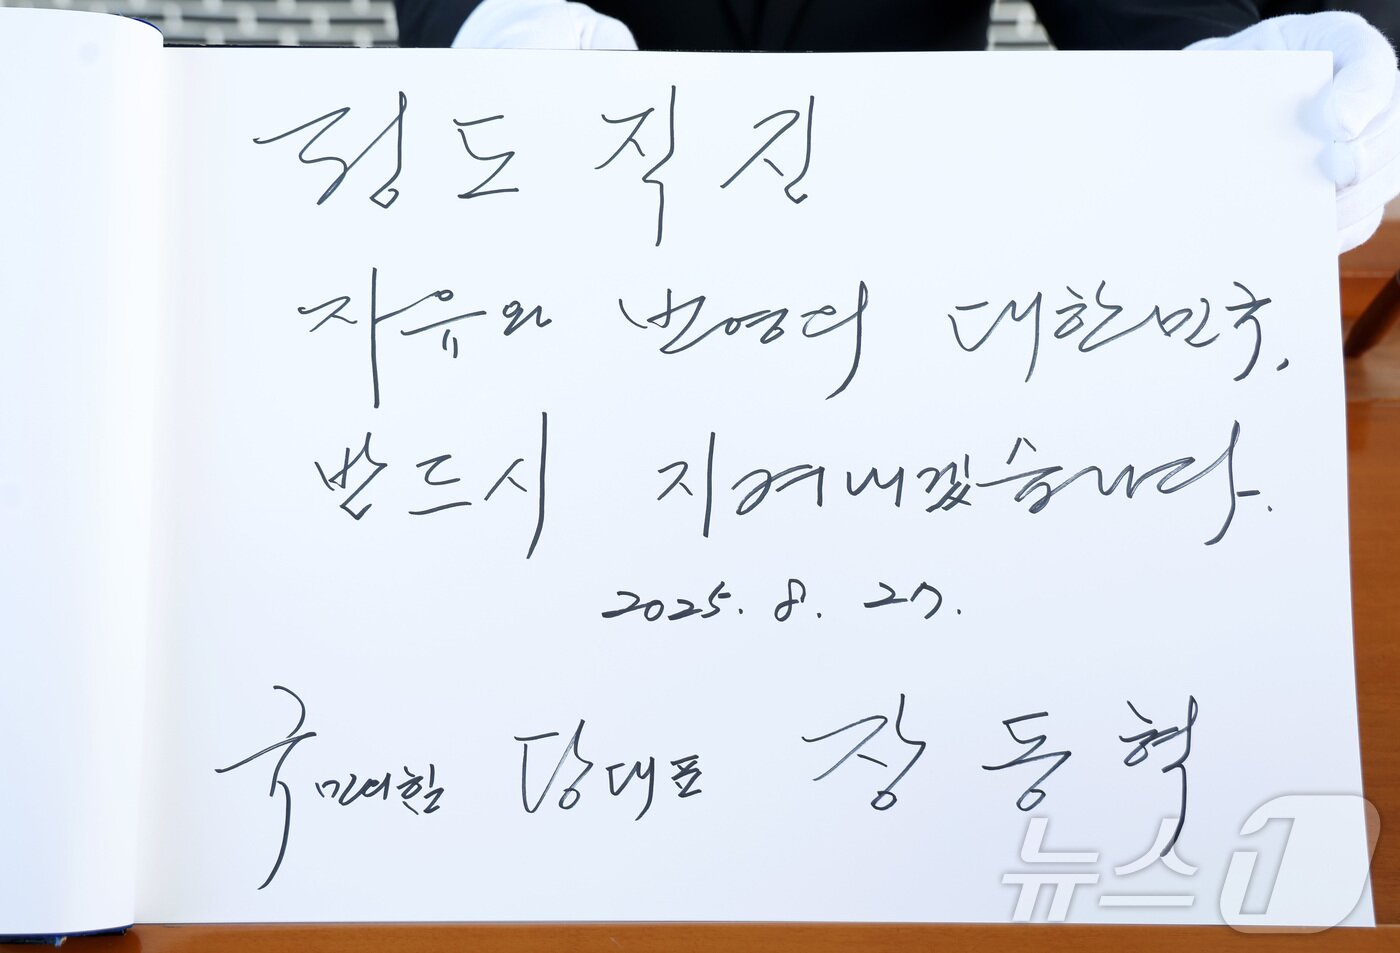 정도직진
자유와 번영의 대한민국,
반드시 지켜내겠습니다.
2025. 8. 27.
국민의힘 당대표 장동혁
뉴스1